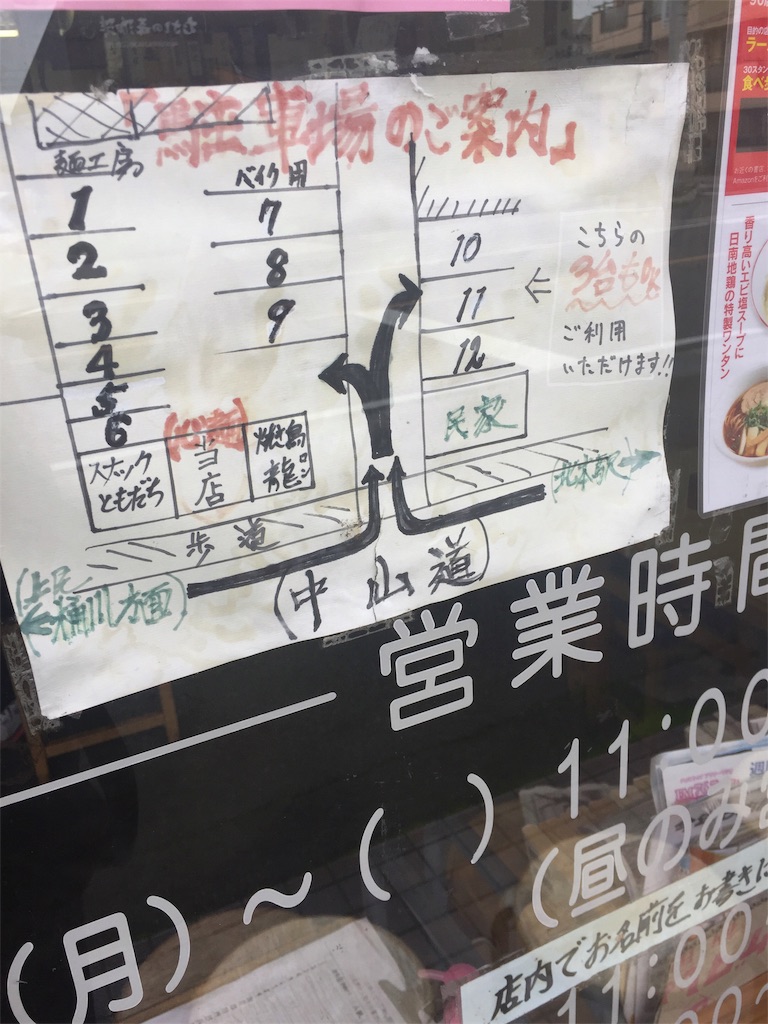 「駐車場のご案内」
麺工房
1
2
3
4
5
6
バイク用
7
8
9
10
11
12
こちらの
3台も
ご利用
いただけます!!
民家
スナック
ともだち
当店
焼鳥
龍
歩道
(北本駅)
(上尾
桶川方面)
(中山道)
目的の店
ラー
30スタン
食べ歩
香り高いエビ塩スープに
日南地鶏の特製ワンタン
営業時間
11:00
(月)~( )
(昼のみ営
店内でお名前をお書きに
11:00